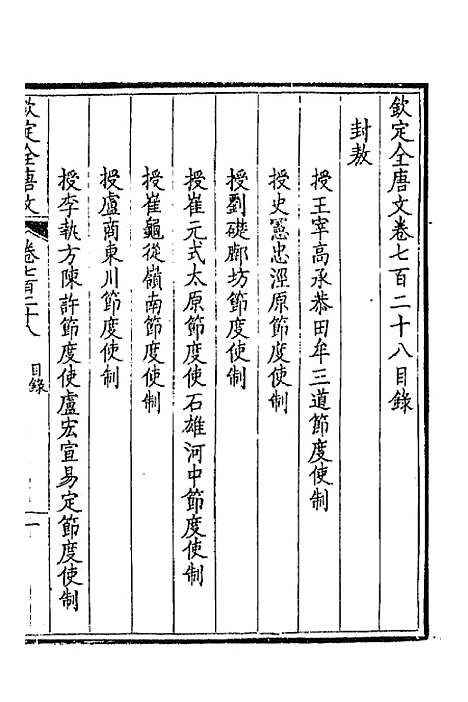 欽定全唐文卷七百二十八目錄
封敖
授王宰高承恭田牟三道節度使制
授史憲忠涇原節度使制
授劉礎鄜坊節度使制
授崔元式太原節度使石雄河中節度使制
授崔龜從嶺南節度使制
授盧商東川節度使制
授李執方陳許節度使盧宏宣易定節度使制
欽定全唐文
卷七百二十八
目錄
一